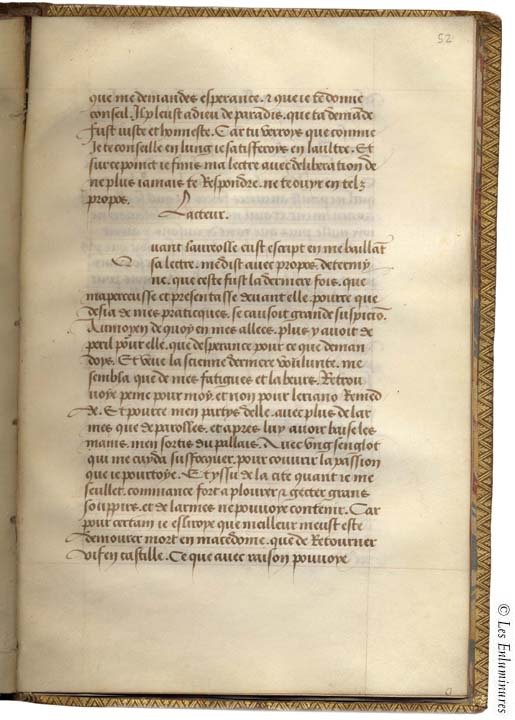 52
que me demandes esperance. & que ie te donne
conseil. Il pleust a dieu de paradis. que ta demāde
fust iuste et honneste. Car tu verroys que comme
Ie te conseille en lung ie satisferoys en laultre. Et
sur ce poinct ie finis ma lectre avec deliberation de
ne plus iamais te Respondre. ne te ouyr en telz
propos.
Lacteur.
Quant laureolle eust escript en me baillāt
sa lectre. me dist avec propos determy
ne. que ceste fust la derniere fois. que
maperceusse et presentasse devant elle. pource que
desia de mes praticques. se causoit grande suspiciō.
Au moyen de quoy en mes allees. plus y avoit de
peril pour elle. que desperance pour ce que deman
doys. Et veue la scienne derniere voulunte. me
sembla que de mes fatigues et labeurs. Retrou
voye peine pour moy. et non pour leriano Remed
de. Et pource men partys delle. avec plus de lar
mes que de parolles. et apres luy avoir baise les
mains. men sortis du pallais. Avec ung senglot
qui me cayda suffocquer. pour couvrir la passion
que ie portoye. Et yssu de la cite quant ie me
seullet. commance fort a plourer & gecter grans
souppirs. et de larmes ne pouvoye contenir. Car
pour certain ie eslisoye que meilleur meust este
demourer mort en macedoine. que de Retourner
vif en castille. Ce que avec raison pouvoye
© Les Enluminures